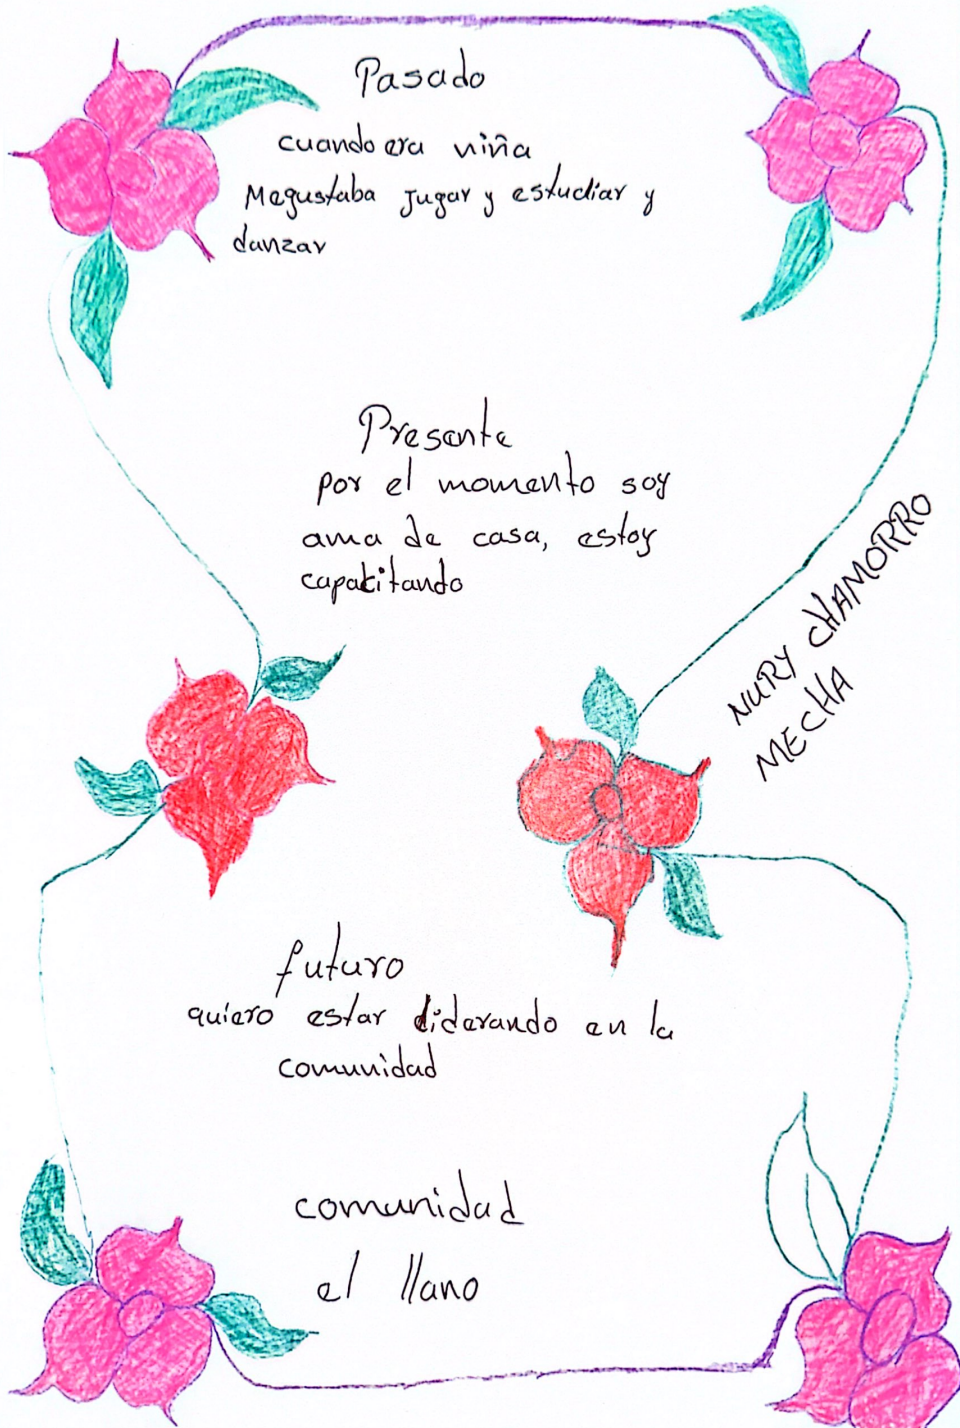 Pasado
cuando era niña
Megustaba Jugar y estudiar y
danzar
Presente
por el momento soy
ama de casa, estoy
capacitando
NURY CHAMORRO
MECHA
futuro
quiero estar liderando en la
comunidad
comunidad
el llano